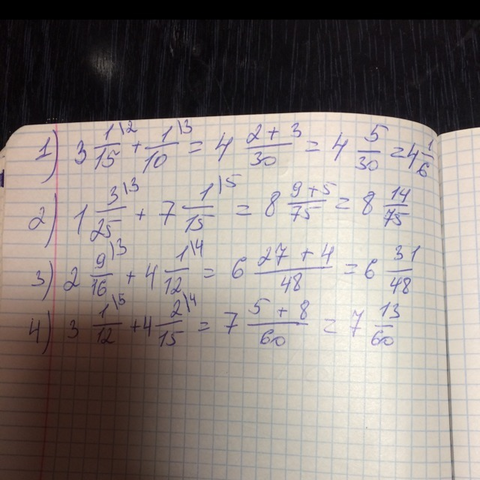 1) 3 1\2/15 + 1\3/10 = 4 2+3/30 = 4 5/30 = 4 1/6
2) 1 3\3/25 + 7 1\5/15 = 8 9+5/75 = 8 14/75
3) 2 9\3/16 + 4 1\4/12 = 6 27+4/48 = 6 31/48
4) 3 1\5/12 + 4 2\4/15 = 7 5+8/60 = 7 13/60